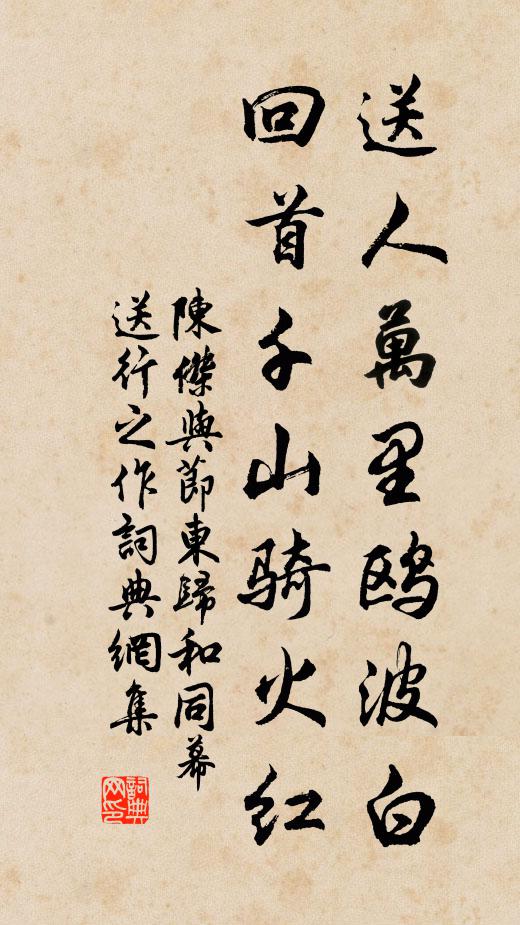 送人萬里鸥波白
回首千山骑火红
陳傑與節東歸和同幕
送行之作詞典網集
詞典网印